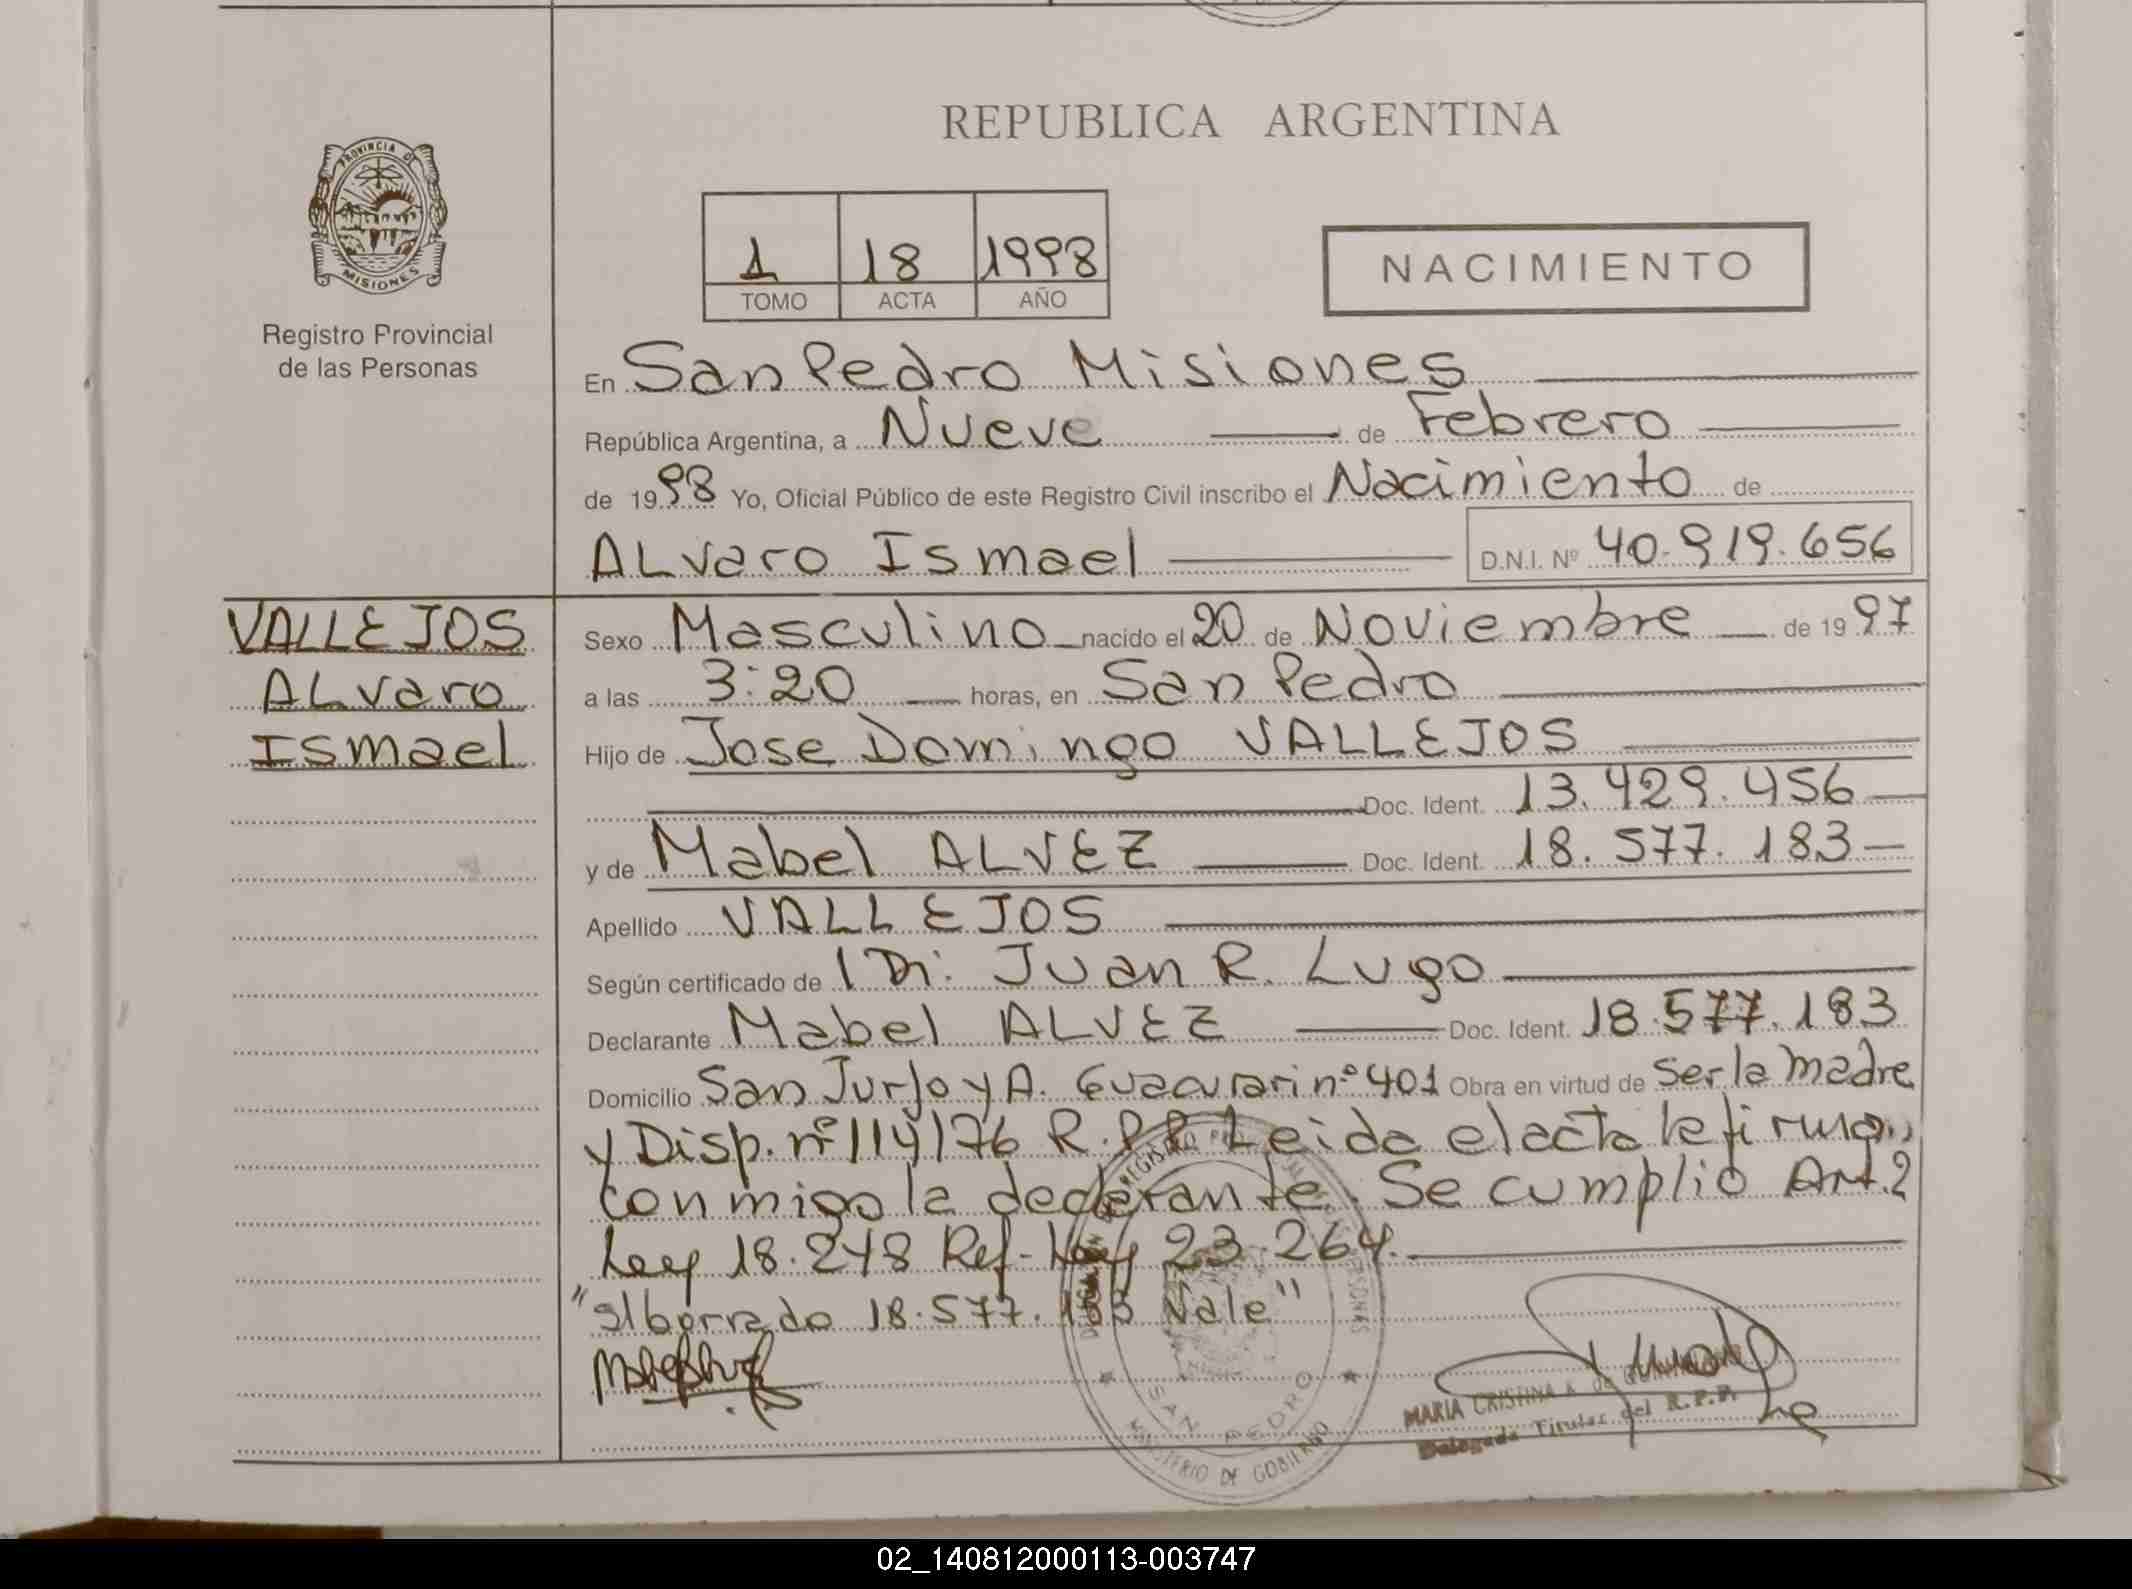 REPUBLICA ARGENTINA
PROVINCIA DE
MISIONES
Registro Provincial
de las Personas
1 18 1998
TOMO ACTA AÑO
NACIMIENTO
En San Pedro Misiones
República Argentina, a Nueve de Febrero
de 1998 Yo, Oficial Público de este Registro Civil inscribo el Nacimiento de
ALvaro Ismael D.N.I. Nº 40.919.656
VALLEJOS
ALvaro
Ismael
Sexo Masculino nacido el 20 de Noviembre de 1997
a las 3:20 horas, en San Pedro
Hijo de Jose Domingo VALLEJOS
Doc. Ident. 13.429.456
y de Mabel ALVEZ Doc. Ident. 18.577.183
Apellido VALLEJOS
Según certificado de Juan R. Lugo
Declarante Mabel ALVEZ Doc. Ident. 18.577.183
Domicilio San Jurjo y A. Guacurari nº 401 Obra en virtud de Ser la madre
y Disp. nº 114/76 R.P.P. Leida el acta la firma
conmigo la declarante. Se cumplio Art. 2
Ley 18.248 Ref. Ley 23.264.
"s/borrado 18.577.183 Vale"
SAN PEDRO
MINISTERIO DE GOBIERNO
MARIA CRISTINA A. de
Delegada Titular del R.P.P.
02_140812000113-003747